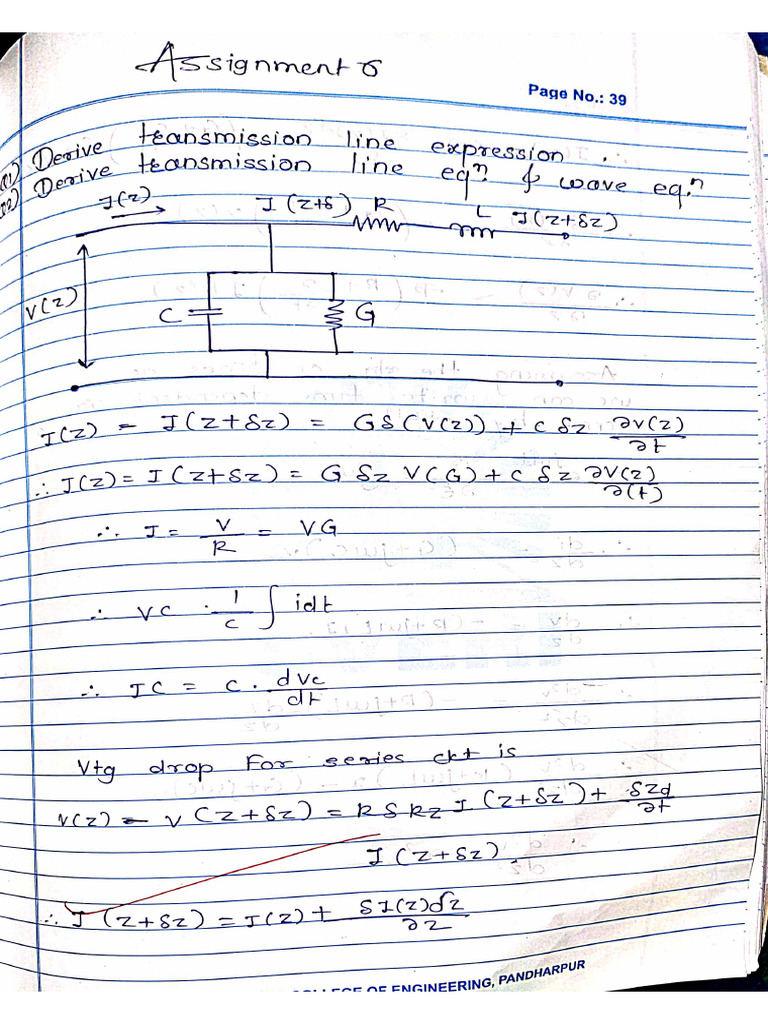 Assignment 6
Page No.: 39
Q1) Derive transmission line expression.
Q2) Derive transmission line eqn & wave eq.n
I(z) I(z+δ) R L I(z+δz)
V(z)
C G
I(z) - I(z+δz) = Gδ(V(z)) + C δz ∂V(z)/∂t
∴ I(z) = I(z+δz) = G δz V(G) + C δz ∂V(z)/∂(t)
∴ I = V/R = VG
∴ VC · 1/C ∫ idt
∴ IC = C · dVc/dt
Vtg drop For series ckt is
V(z) - V(z+δz) = R δ Rz I(z+δz) + δzd/∂t
I(z+δz).
∴ I(z+δz) = I(z) + δI(z)dz/∂z
COLLEGE OF ENGINEERING, PANDHARPUR